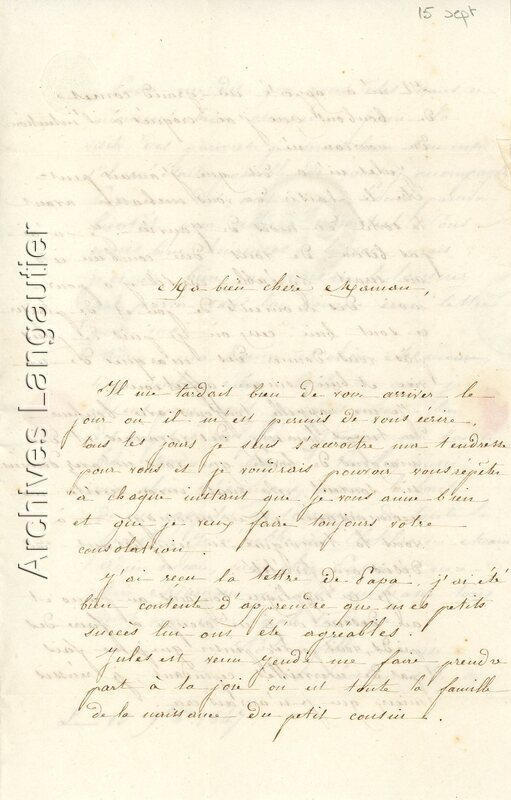 15 sept
Archives Langautier
Ma bien chère Maman,
Il me tardait bien de voir arriver le
jour où il m'est permis de vous écrire,
tous les jours je sens s'accroître ma tendresse
pour vous et je voudrais pouvoir vous répéter
à chaque instant que je vous aime bien
et que je veux faire toujours votre
consolation.
J'ai reçu la lettre de Papa, j'ai été
bien contente d'apprendre que mes petits
succès lui ont été agréables.
Jules est venu jeudi me faire prendre
part à la joie où est toute la famille
de la naissance du petit cousin.